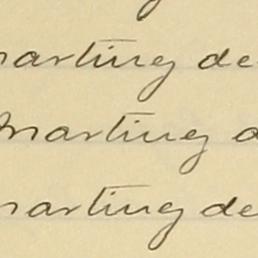 marting de
marting d
marting de